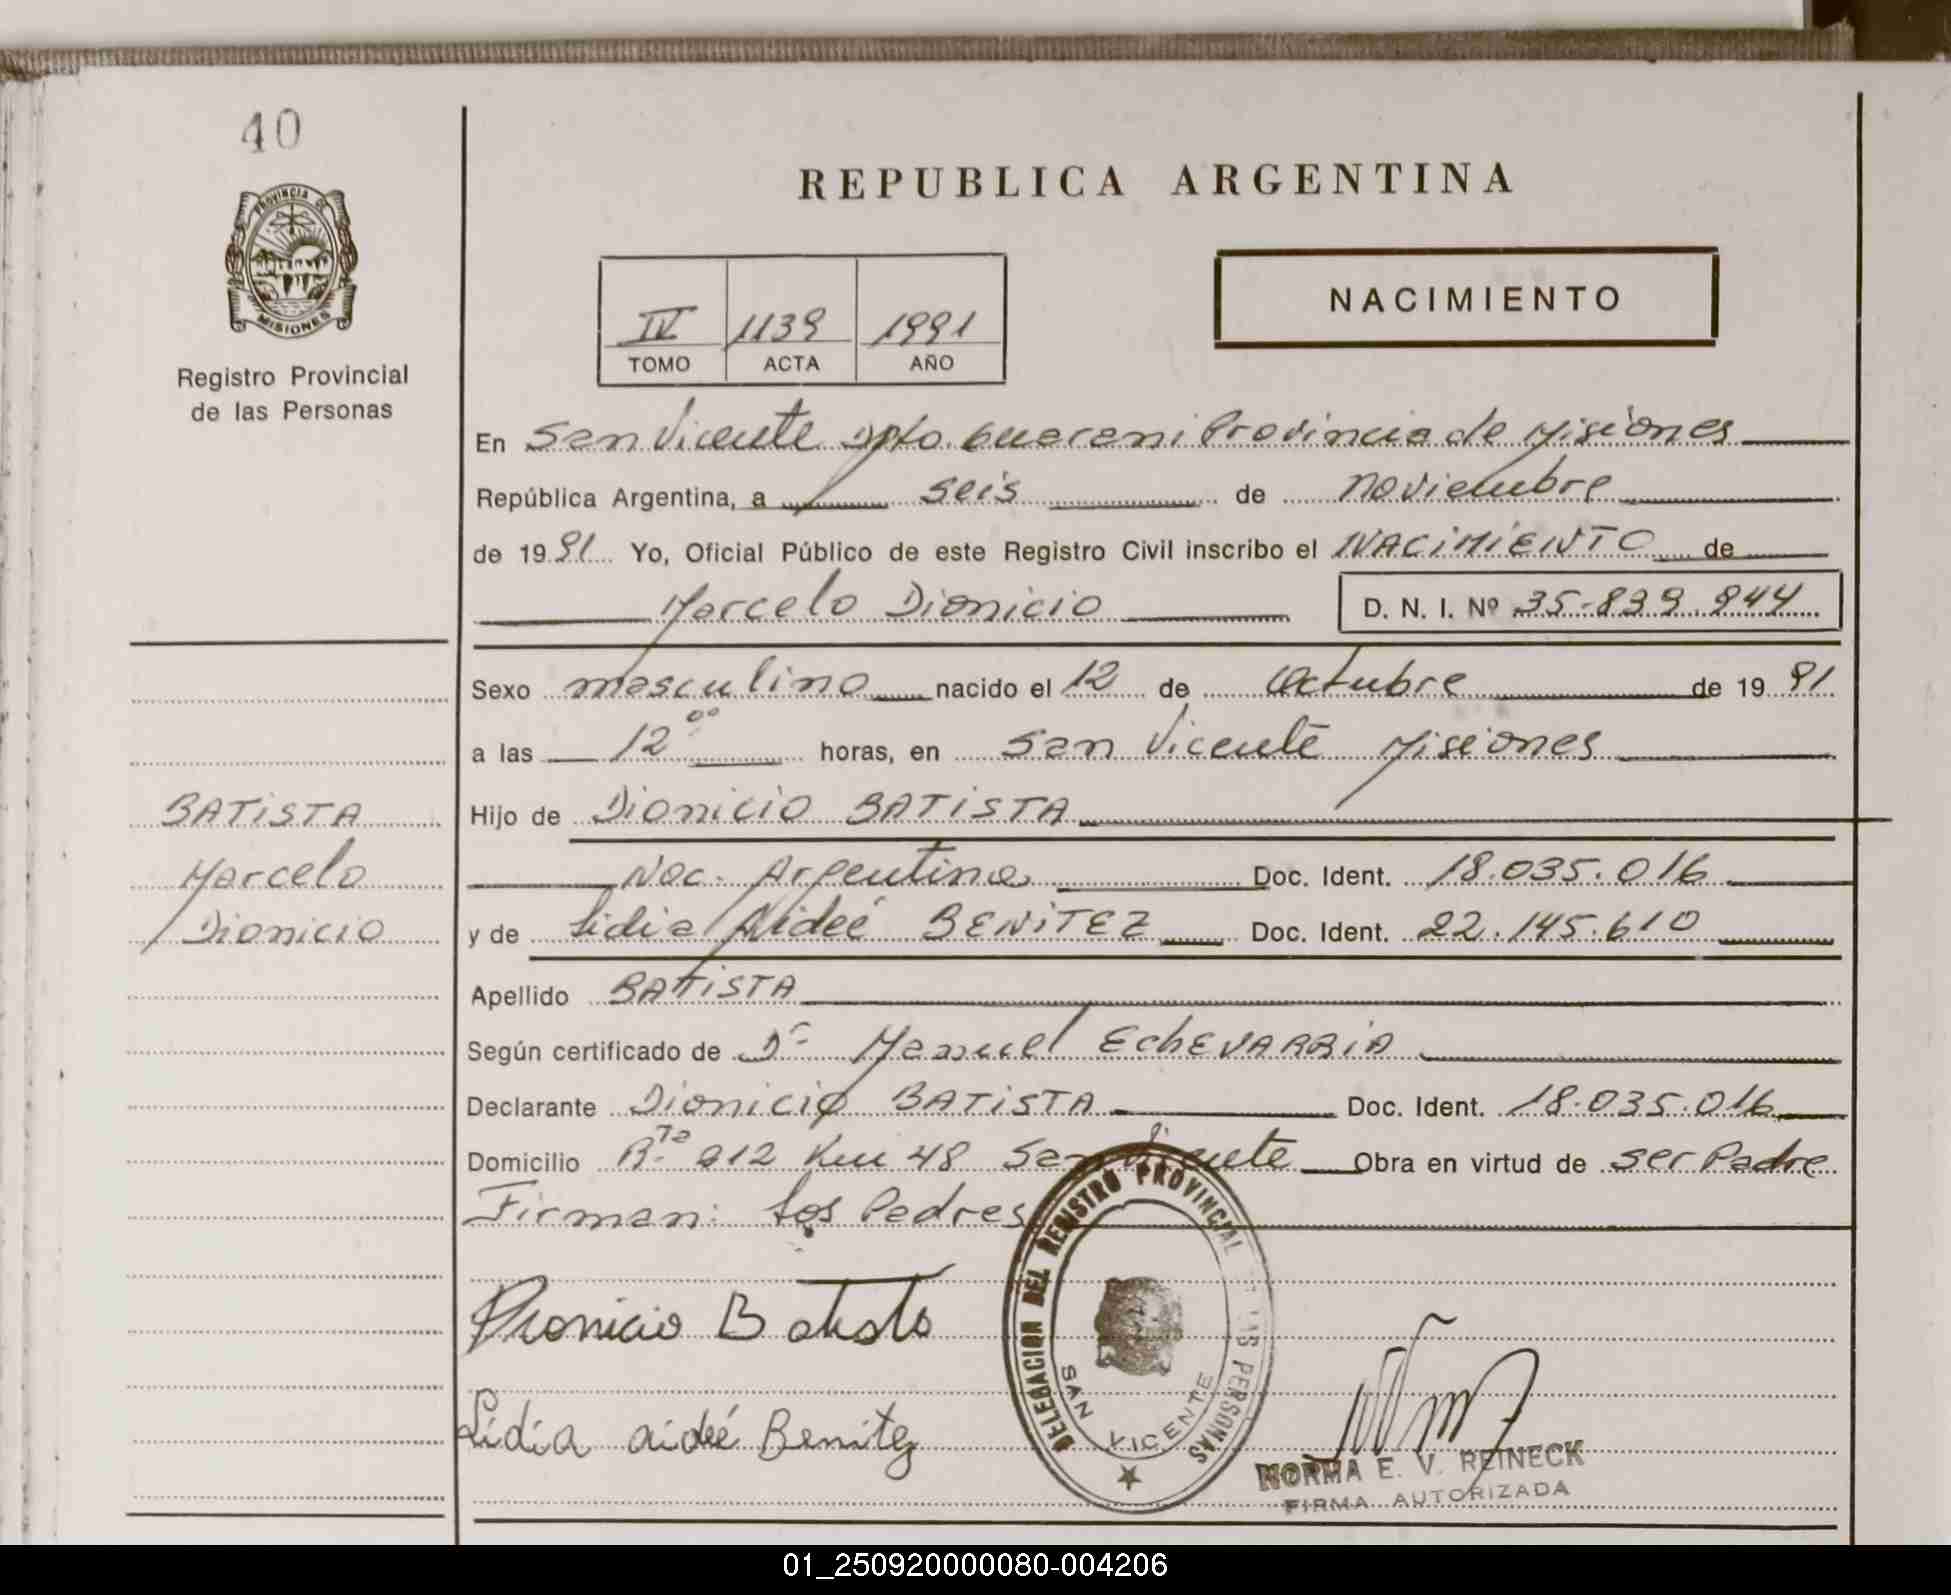 40
PROVINCIA DE
MISIONES
Registro Provincial
de las Personas
REPUBLICA ARGENTINA
IV 1139 1991
TOMO ACTA AÑO
NACIMIENTO
En San Vicente Dpto. Guarani Provincia de Misiones
República Argentina, a seis de noviembre
de 1991 Yo, Oficial Público de este Registro Civil inscribo el NACIMIENTO de
Marcelo Dionicio D. N. I. Nº 35.839.844
Sexo masculino nacido el 12 de Octubre de 1991
a las 12 00 horas, en San Vicente Misiones
Hijo de Dionicio BATISTA
Nac. Argentina Doc. Ident. 18.035.016
y de Lidia Aideé BENITEZ Doc. Ident. 22.145.610
Apellido BATISTA
Según certificado de Dr Manuel EchEVARRIA
Declarante Dionicio BATISTA Doc. Ident. 18.035.016
Domicilio Rta 212 Km 48 San Vicente Obra en virtud de ser Padre
Firman: Los Padres
BATISTA
Marcelo
Dionicio
Dionicio Batista
Lidia aideé Benitez
DELEGACION DEL REGISTRO PROVINCIAL DE LAS PERSONAS
SAN VICENTE
NORMA E. V. REINECK
FIRMA AUTORIZADA
01_250920000080-004206